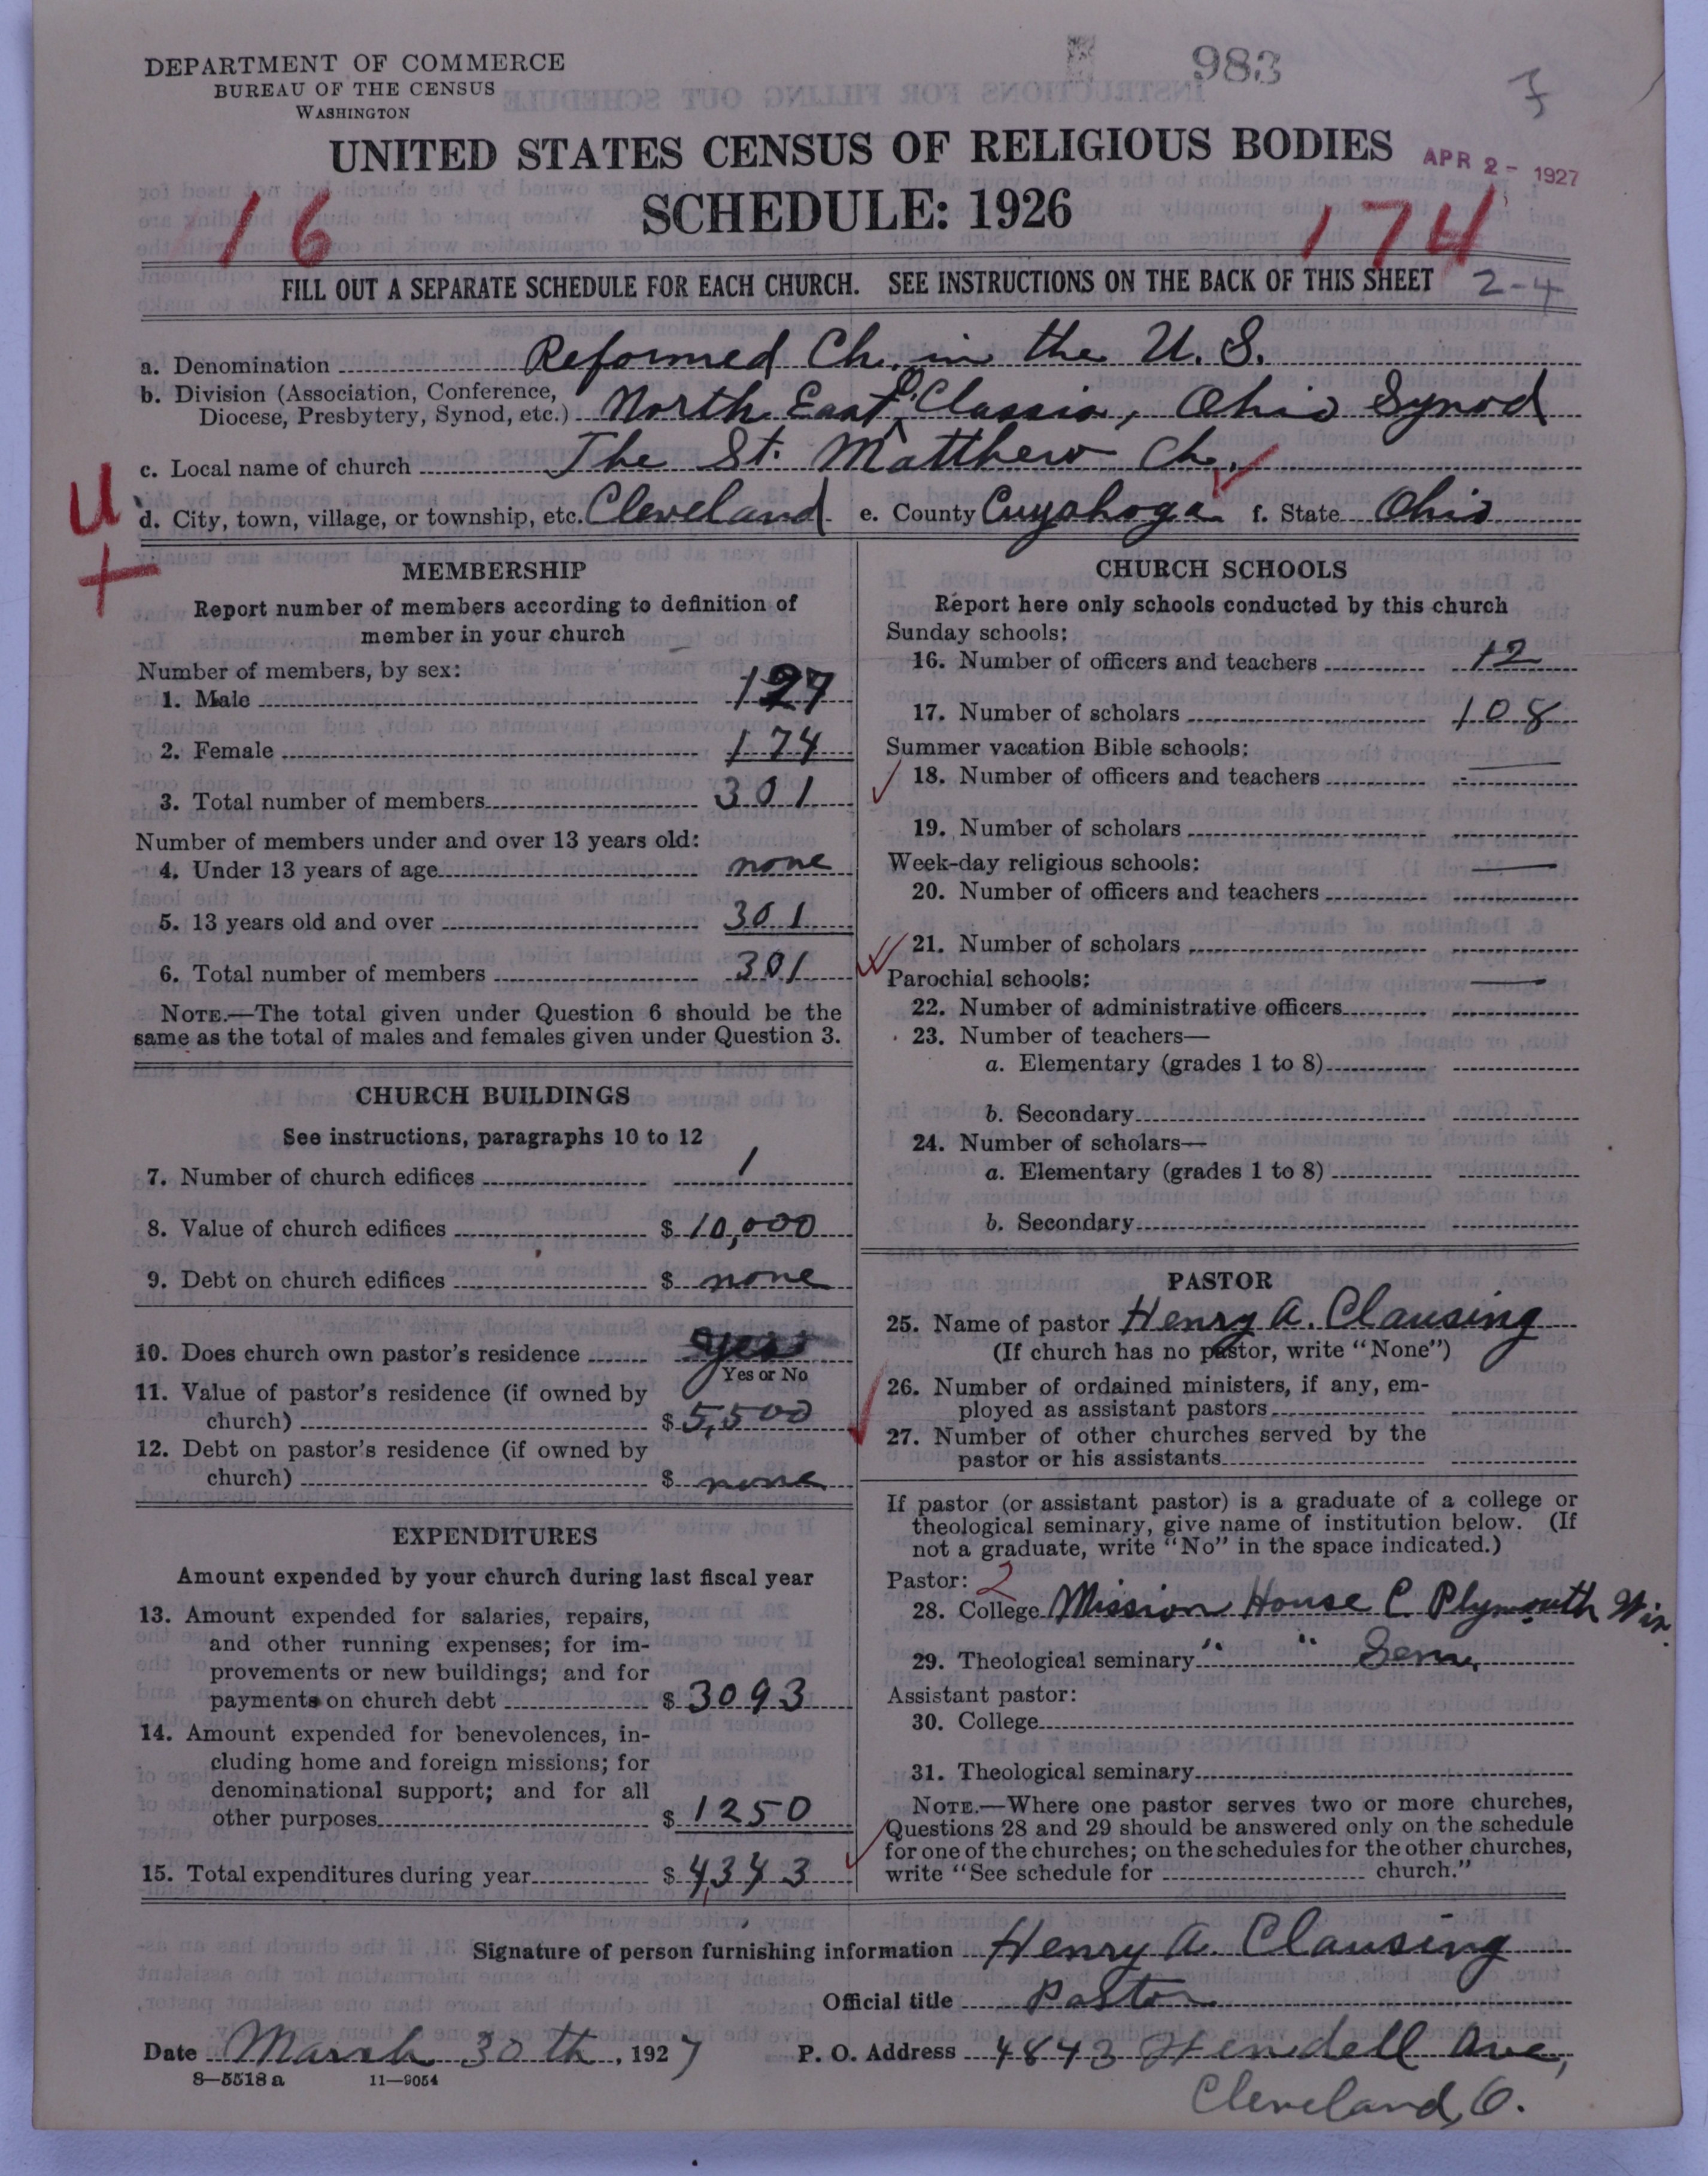 DEPARTMENT OF COMMERCE
BUREAU OF THE CENSUS
WASHINGTON
983
UNITED STATES CENSUS OF RELIGIOUS BODIES
APR 2 - 1927
SCHEDULE: 1926
16
174
FILL OUT A SEPARATE SCHEDULE FOR EACH CHURCH. SEE INSTRUCTIONS ON THE BACK OF THIS SHEET 2-4
a. Denomination Reformed Ch. in the U. S.
b. Division (Association, Conference,
Diocese, Presbytery, Synod, etc.) North East O. Classis, Ohio Synod
c. Local name of church The St. Matthew Ch.
d. City, town, village, or township, etc. Cleveland e. County Cuyahoga f. State Ohio
U
+
MEMBERSHIP
Report number of members according to definition of
member in your church
Number of members, by sex:
1. Male 127
2. Female 174
3. Total number of members 301
Number of members under and over 13 years old:
4. Under 13 years of age none
5. 13 years old and over 301
6. Total number of members 301
NOTE.—The total given under Question 6 should be the
same as the total of males and females given under Question 3.
CHURCH BUILDINGS
See instructions, paragraphs 10 to 12
7. Number of church edifices 1
8. Value of church edifices $ 10,000
9. Debt on church edifices $ none
10. Does church own pastor's residence yes
Yes or No
11. Value of pastor's residence (if owned by
church) $ 5,500
12. Debt on pastor's residence (if owned by
church) $ none
EXPENDITURES
Amount expended by your church during last fiscal year
13. Amount expended for salaries, repairs,
and other running expenses; for im-
provements or new buildings; and for
payments on church debt $ 3093
14. Amount expended for benevolences, in-
cluding home and foreign missions; for
denominational support; and for all
other purposes $ 1250
15. Total expenditures during year $ 4343
CHURCH SCHOOLS
Report here only schools conducted by this church
Sunday schools:
16. Number of officers and teachers 12
17. Number of scholars 108
Summer vacation Bible schools:
18. Number of officers and teachers
19. Number of scholars
Week-day religious schools:
20. Number of officers and teachers
21. Number of scholars
Parochial schools:
22. Number of administrative officers
23. Number of teachers—
a. Elementary (grades 1 to 8)
b. Secondary
24. Number of scholars—
a. Elementary (grades 1 to 8)
b. Secondary
PASTOR
25. Name of pastor Henry A. Clausing
(If church has no pastor, write "None")
26. Number of ordained ministers, if any, em-
ployed as assistant pastors
27. Number of other churches served by the
pastor or his assistants
If pastor (or assistant pastor) is a graduate of a college or
theological seminary, give name of institution below. (If
not a graduate, write "No" in the space indicated.)
Pastor: 2
28. College Mission House C. Plymouth Wis.
29. Theological seminary " " Sem.
Assistant pastor:
30. College
31. Theological seminary
NOTE.—Where one pastor serves two or more churches,
Questions 28 and 29 should be answered only on the schedule
for one of the churches; on the schedules for the other churches,
write "See schedule for church."
Signature of person furnishing information Henry A. Clausing
Official title Pastor
Date March 30th, 1927 P. O. Address 4843 Hendell Ave,
8—5518 a 11—9054
Cleveland, O.